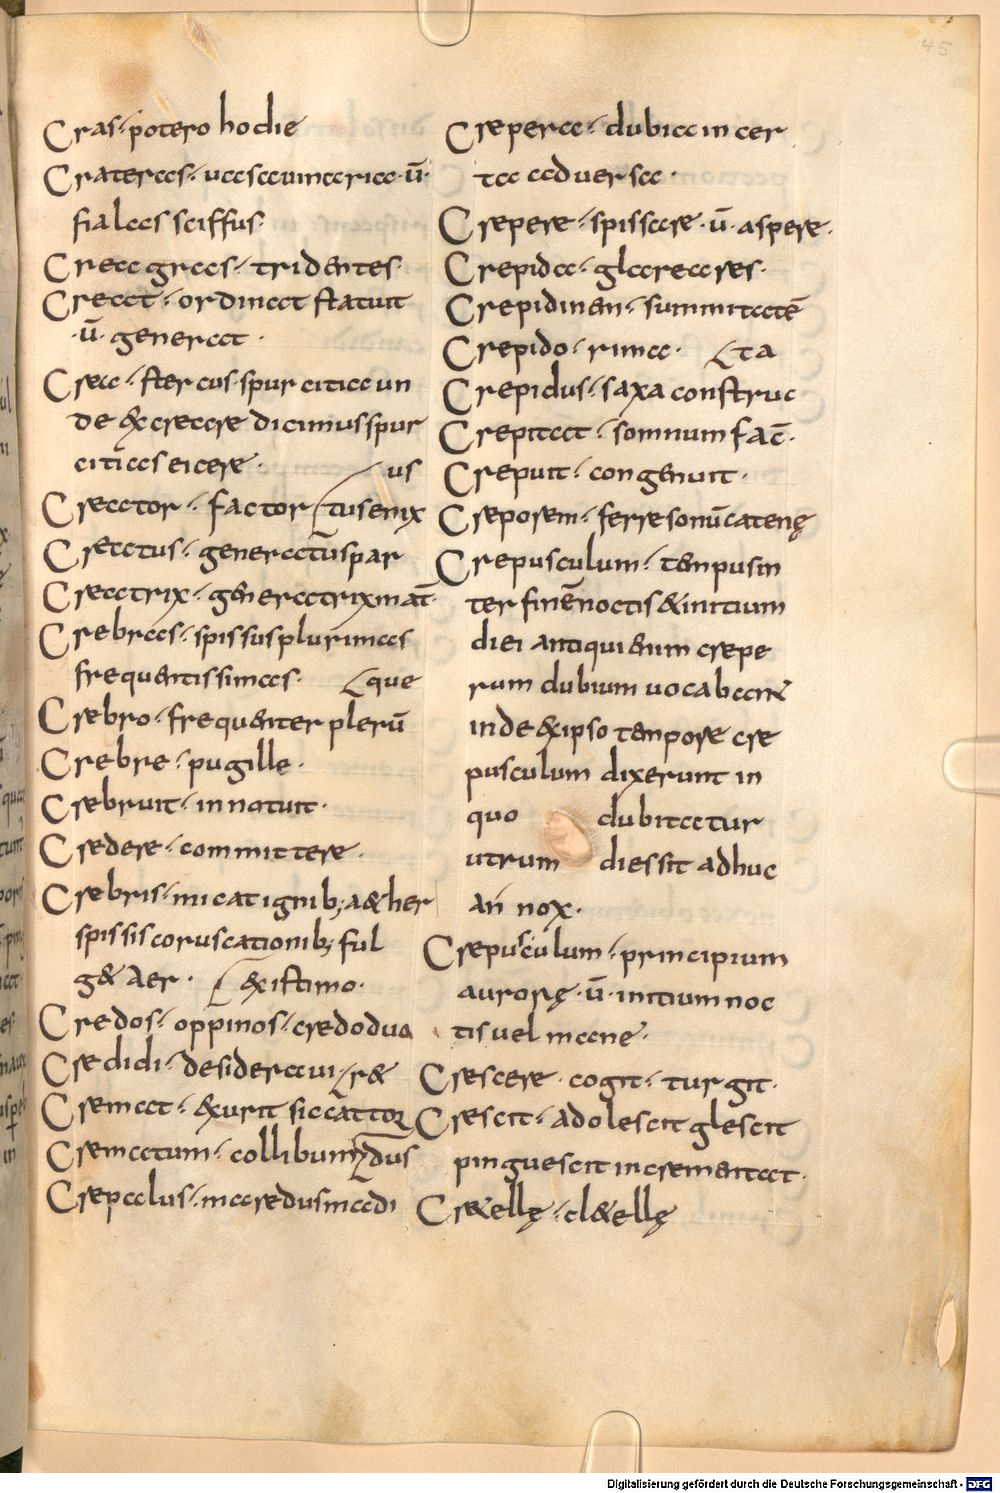 45
Cras · potero hodie
Crateras · uasa uinaria · ū ·
fialas sciffus ·
Creagras · tridentes ·
Creat · ordinat statuit
· ū · generat ·
Crea · stercus · spurcitia un
de & creare dicimus spur
citias eicere · us
Creator · factor tus enix
Creatus · generatus par
Creatrix · generatrix mat̄
Crebras · spissus plurimas
frequentissimas · que
Crebro · frequenter plerū
Crebre · pugille ·
Crebruit · innotuit ·
Credere · committere ·
Crebris · micat ignib; a&her
spissis coruscationib; ful
g& aer · existimo ·
Credos · oppinos · credo duo
Credidi · desideraui r&
Cremat · exurit siccat tor
Crematum · collibum dus
Crepalus · maredus madi
Crepera · dubia incer
ta aduersa ·
Crepere · spissare · ū · aspere ·
Crepida · glareares ·
Crepidinem · summitatē
Crepido · rima · ta
Crepidus · saxa construc
Crepitat · somnum fac̄ ·
Crepuit · congemuit ·
Creporem · ferre sonū catenę
Crepusculum · tempus in
ter finē noctis & initium
diei antiqui enim crepe
rum dubium uocabant
inde & ipso tempore cre
pusculum dixerunt in
quo dubitatur
utrum dies sit adhuc
an nox ·
Crepusculum · principium
aurorę · ū · initium noc
tis uel mane ·
Crescere · cogit · turgit ·
Crescit · adolescit glescit
pinguescit incrementat ·
Cr&ellę · cl&ellę
Digitalisierung gefördert durch die Deutsche Forschungsgemeinschaft - DFG